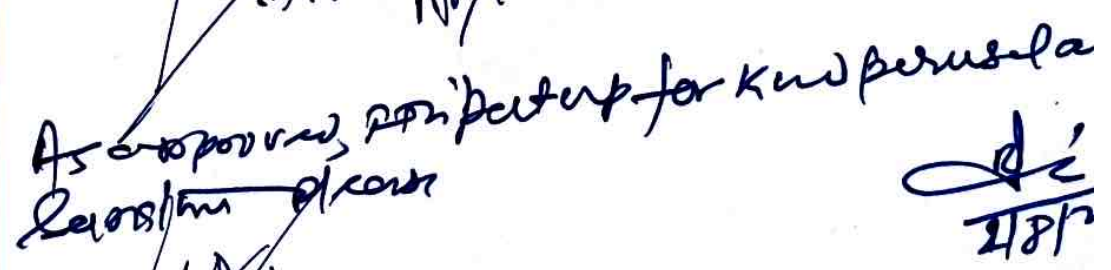 As approved, put up for kind perusal a
Sanction please
2/8/